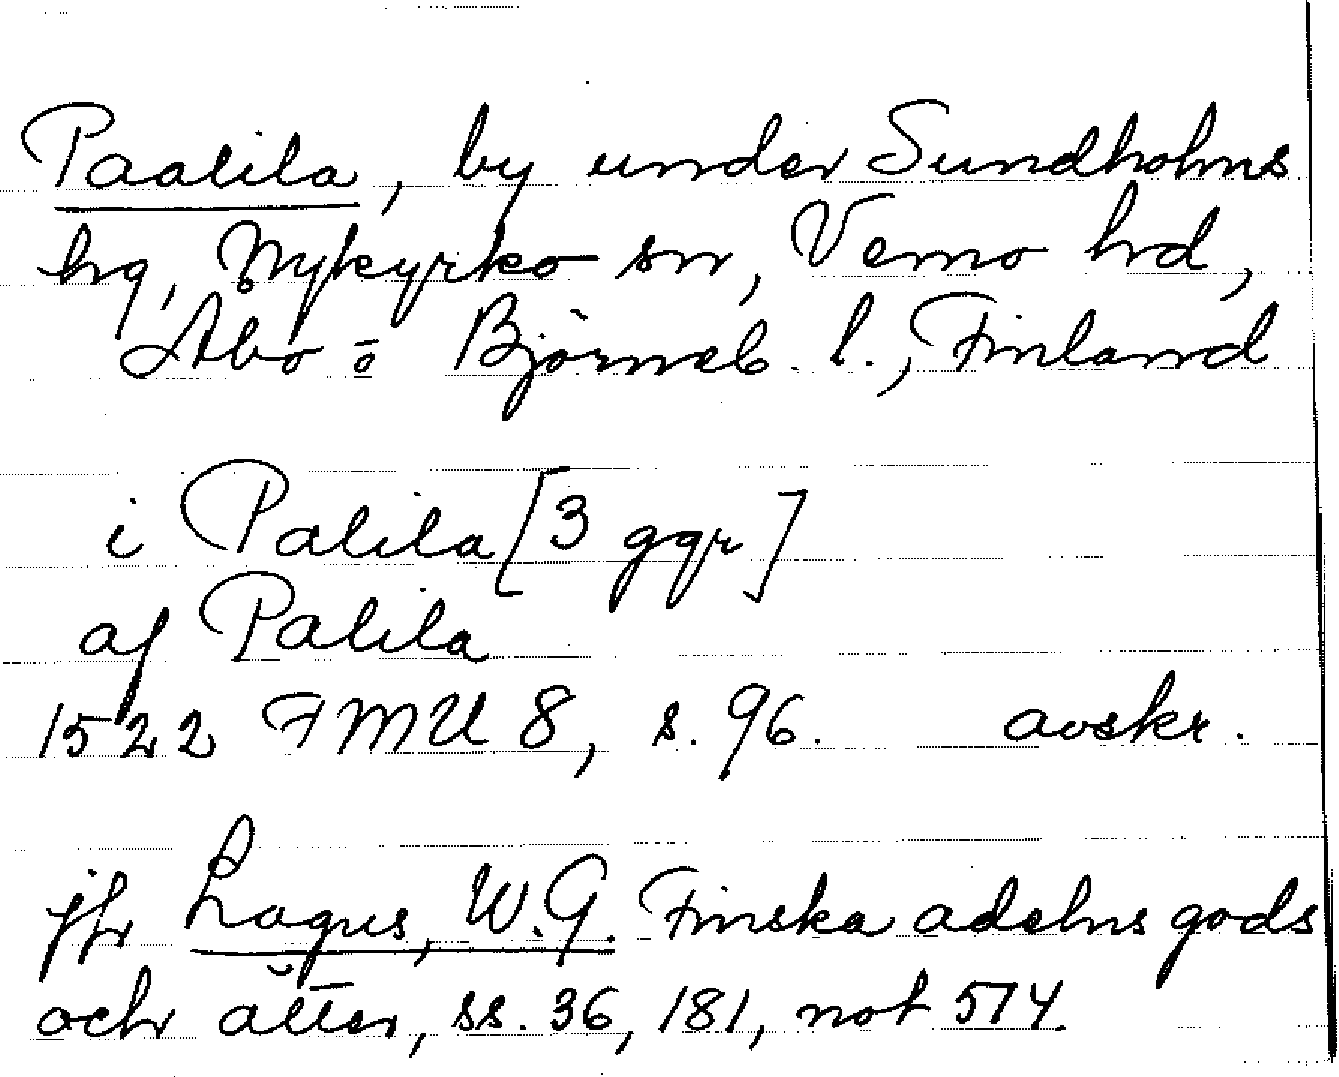 Paalila, by under Sundholms
hg, Nykyrko sn, Vemo hd,
Åbo o Björneb. l., Finland
i Palila [3 ggr]
af Palila
1522 FMU 8, s. 96. avskr.
jfr Lagus, W.G. Finska adelns gods
och ätter, ss. 36, 181, not 574.